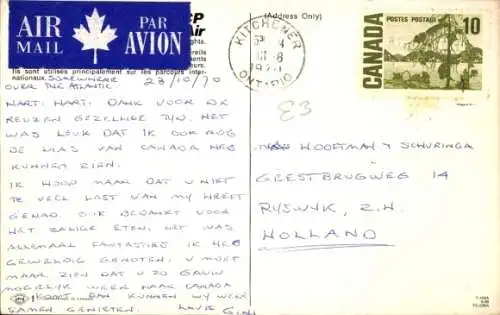 AIR MAIL
PAR AVION
CP Air
(Address Only)
ghts.
Ils sont utilisés principalement sur les parcours inter-
nationaux.
SOMEWHERE
OVER THE ATLANTIC
23/10/70
KITCHENER
ONTARIO
CANADA
POSTES POSTAGE
10
E3
HART. HART. DANK VOOR DE
REUZEN GEZELLIGE TYD. HET
WAS LEUK DAT IK OOK NOG
DE VAN CANADA HEB
KUNNEN ZIEN.
IK HOOP MAAR DAT U NIET
TE VEEL LAST VAN MY HEEFT
GEHAD. OOK BEDANKT VOOR
HET ZALIGE ETEN. HET WAS
ALLEMAAL FANTASTIES IK HEB
GEWELDIG GENOTEN. U MOET
MAAR ZIEN DAT U ZO GAUW
MOGELYK WEER NAAR CANADA
KOMT DAN KUNNEN WY WEER
SAMEN GENIETEN.
HOOFTMAN + SCHURINGA
GEESTBRUGWEG 14
RYSWYK, Z.H.
HOLLAND